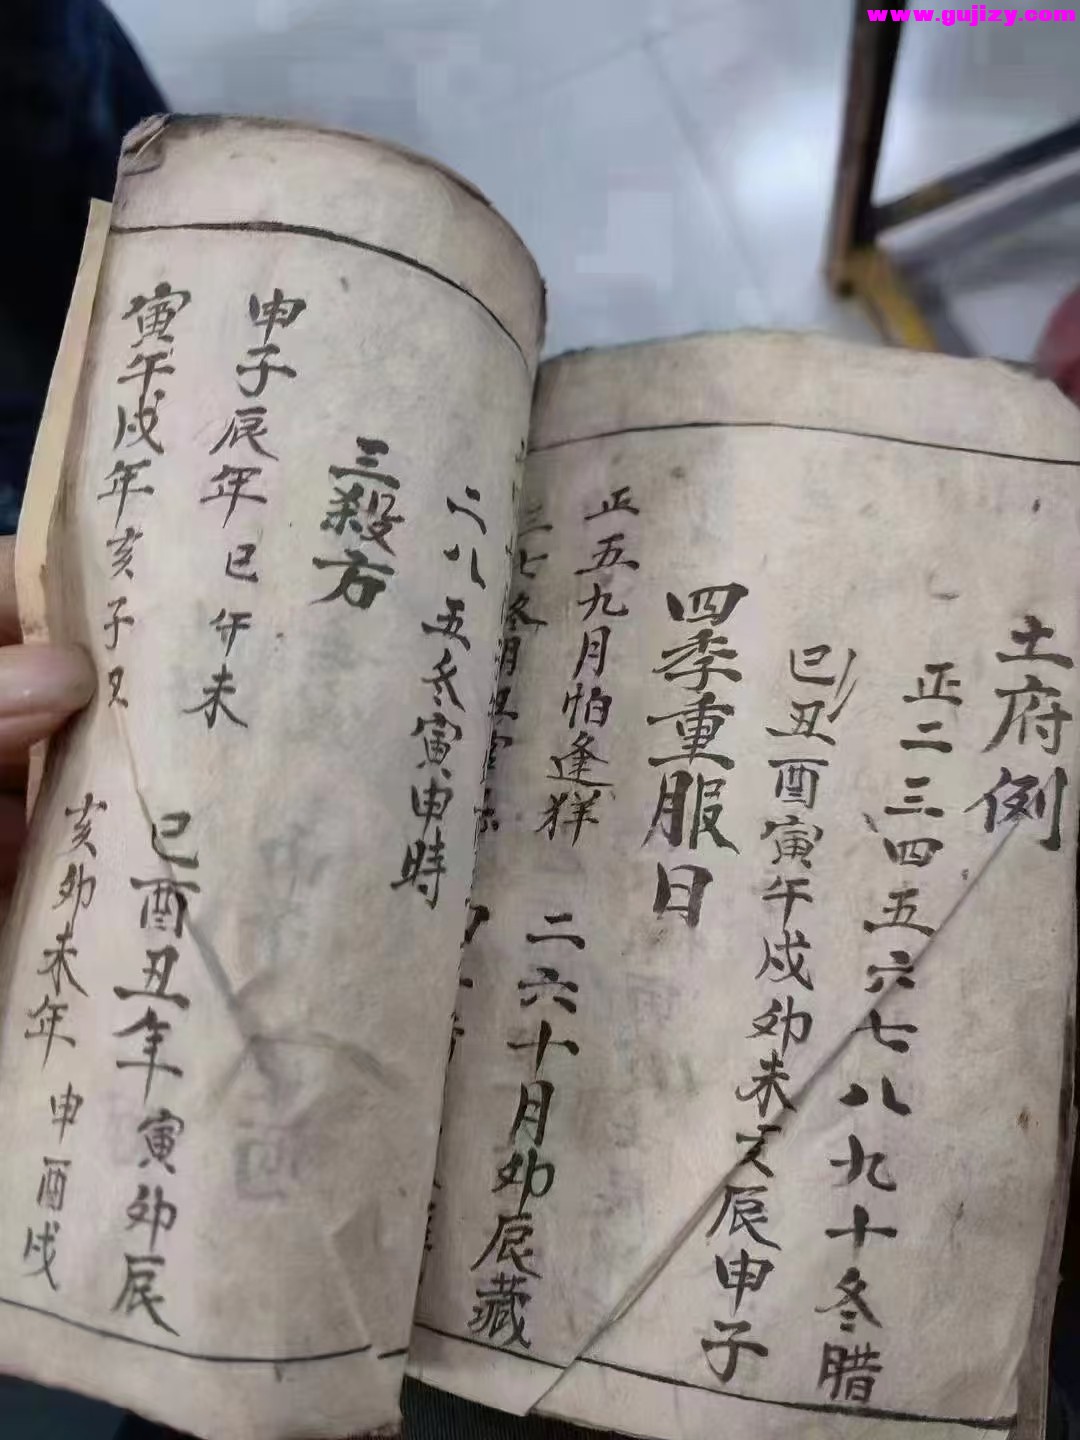 www.gujizy.com
土府例
正二三四五六七八九十冬腊
巳丑酉寅午戌卯未亥辰申子
四季重服日
正五九月怕逢
二六十月卯辰藏
三七冬
二八五冬寅申時
三殺方
申子辰年 巳午未
巳酉丑年 寅卯辰
寅午戌年 亥子丑
亥卯未年 申酉戌